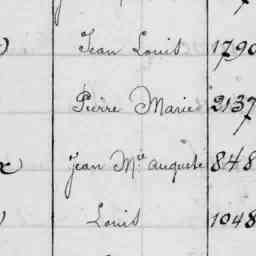 Jean Louis 1790
Pierre Marie 2137
Jean Mie auguste 848
Louis 1048